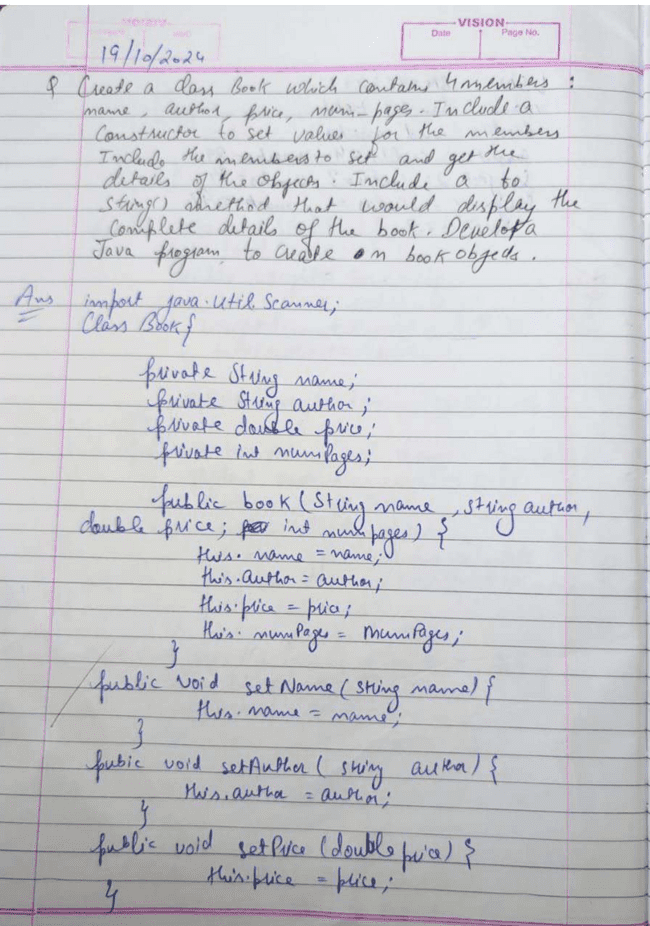 VISION
Date
Page No.
19/10/2024
Q Create a class Book which contains 4 members :
name, author, price, num-pages. Include a
Constructor to set values for the members
Include the members to set and get the
details of the objects. Include a to
String() method that would display the
complete details of the book. Develop a
Java program to create n book objects.
Ans import java.util.Scanner;
Class Book{
private String name;
private String author;
private double price;
private int numPages;
public book (String name, String author,
double price; int numpages) {
this.name = name;
this.author = author;
this.price = price;
this.numPages = numPages;
}
public void setName (String name) {
this.name = name;
}
pubic void setAuthor ( String author) {
this.author = author;
}
public void setPrice (double price) {
this.price = price;
}